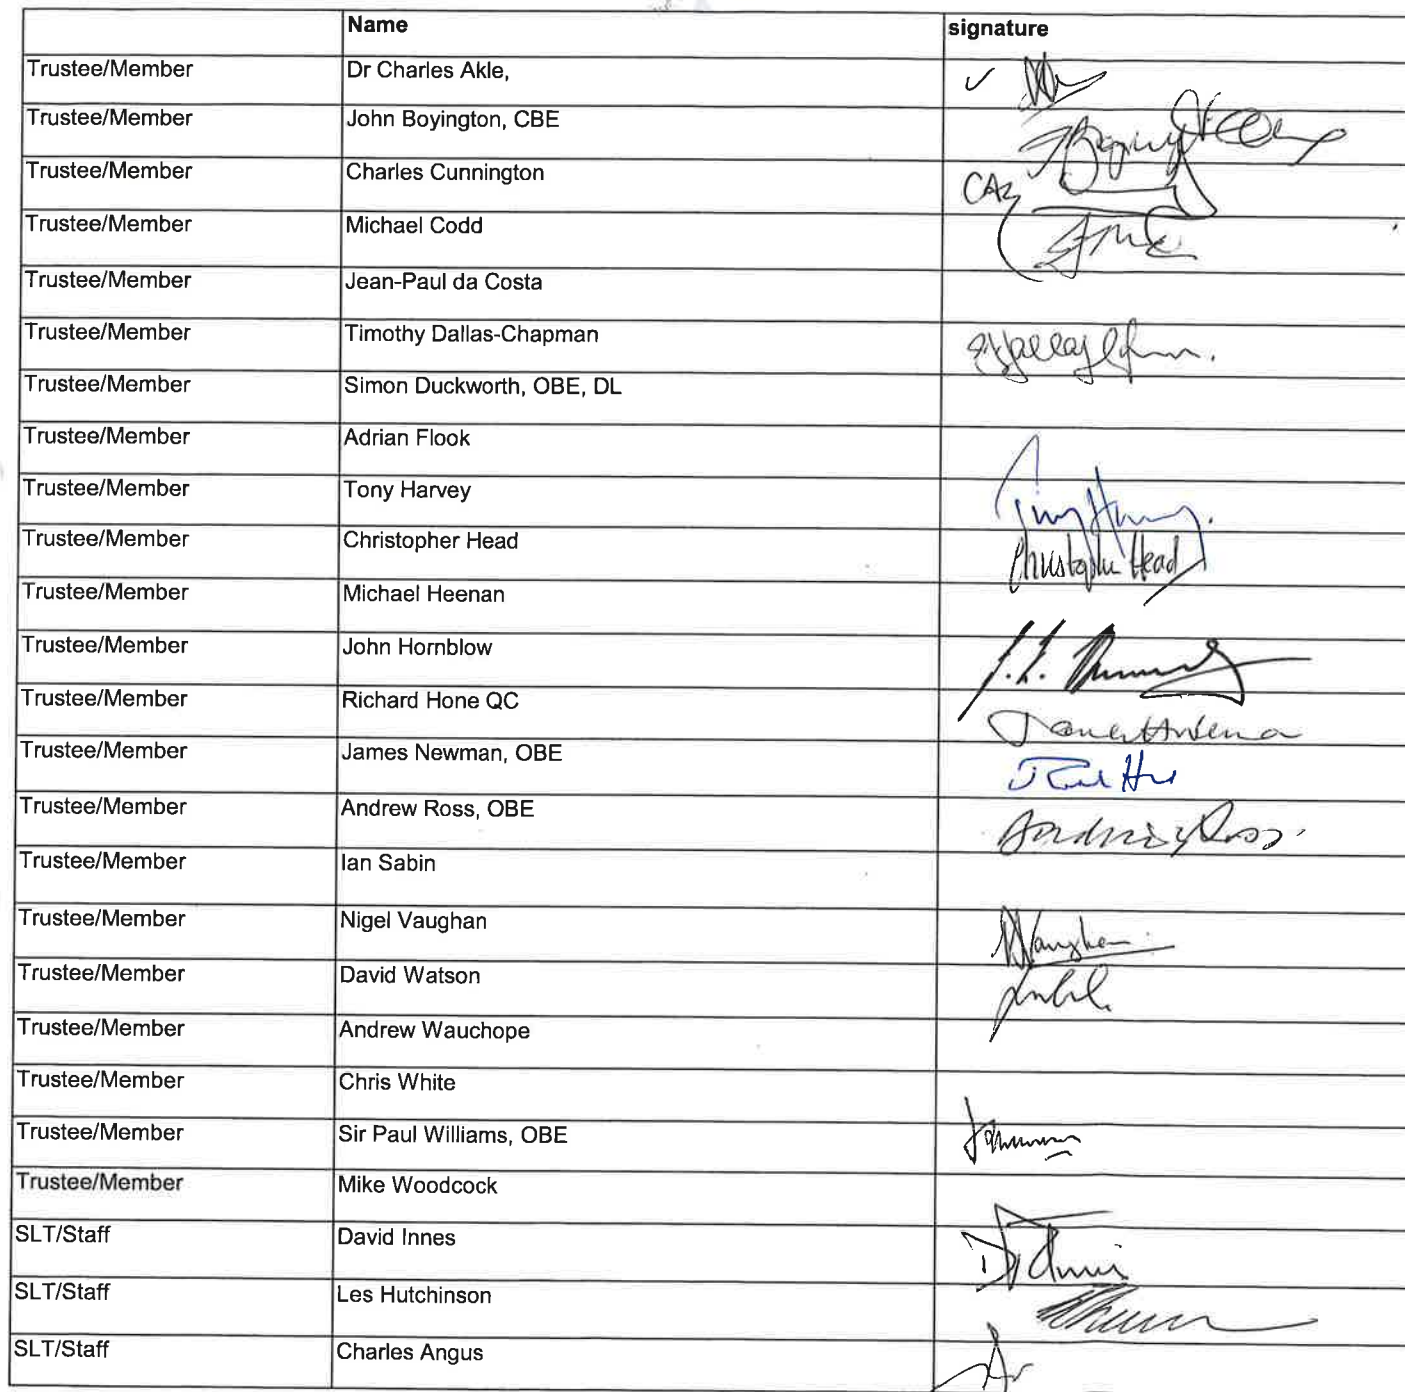 Name signature
Trustee/Member Dr Charles Akle,
Trustee/Member John Boyington, CBE
Trustee/Member Charles Cunnington
Trustee/Member Michael Codd
Trustee/Member Jean-Paul da Costa
Trustee/Member Timothy Dallas-Chapman
Trustee/Member Simon Duckworth, OBE, DL
Trustee/Member Adrian Flook
Trustee/Member Tony Harvey
Trustee/Member Christopher Head Christopher Head
Trustee/Member Michael Heenan
Trustee/Member John Hornblow
Trustee/Member Richard Hone QC
Trustee/Member James Newman, OBE
Trustee/Member Andrew Ross, OBE
Trustee/Member Ian Sabin
Trustee/Member Nigel Vaughan NVaughan
Trustee/Member David Watson
Trustee/Member Andrew Wauchope
Trustee/Member Chris White
Trustee/Member Sir Paul Williams, OBE
Trustee/Member Mike Woodcock
SLT/Staff David Innes
SLT/Staff Les Hutchinson
SLT/Staff Charles Angus